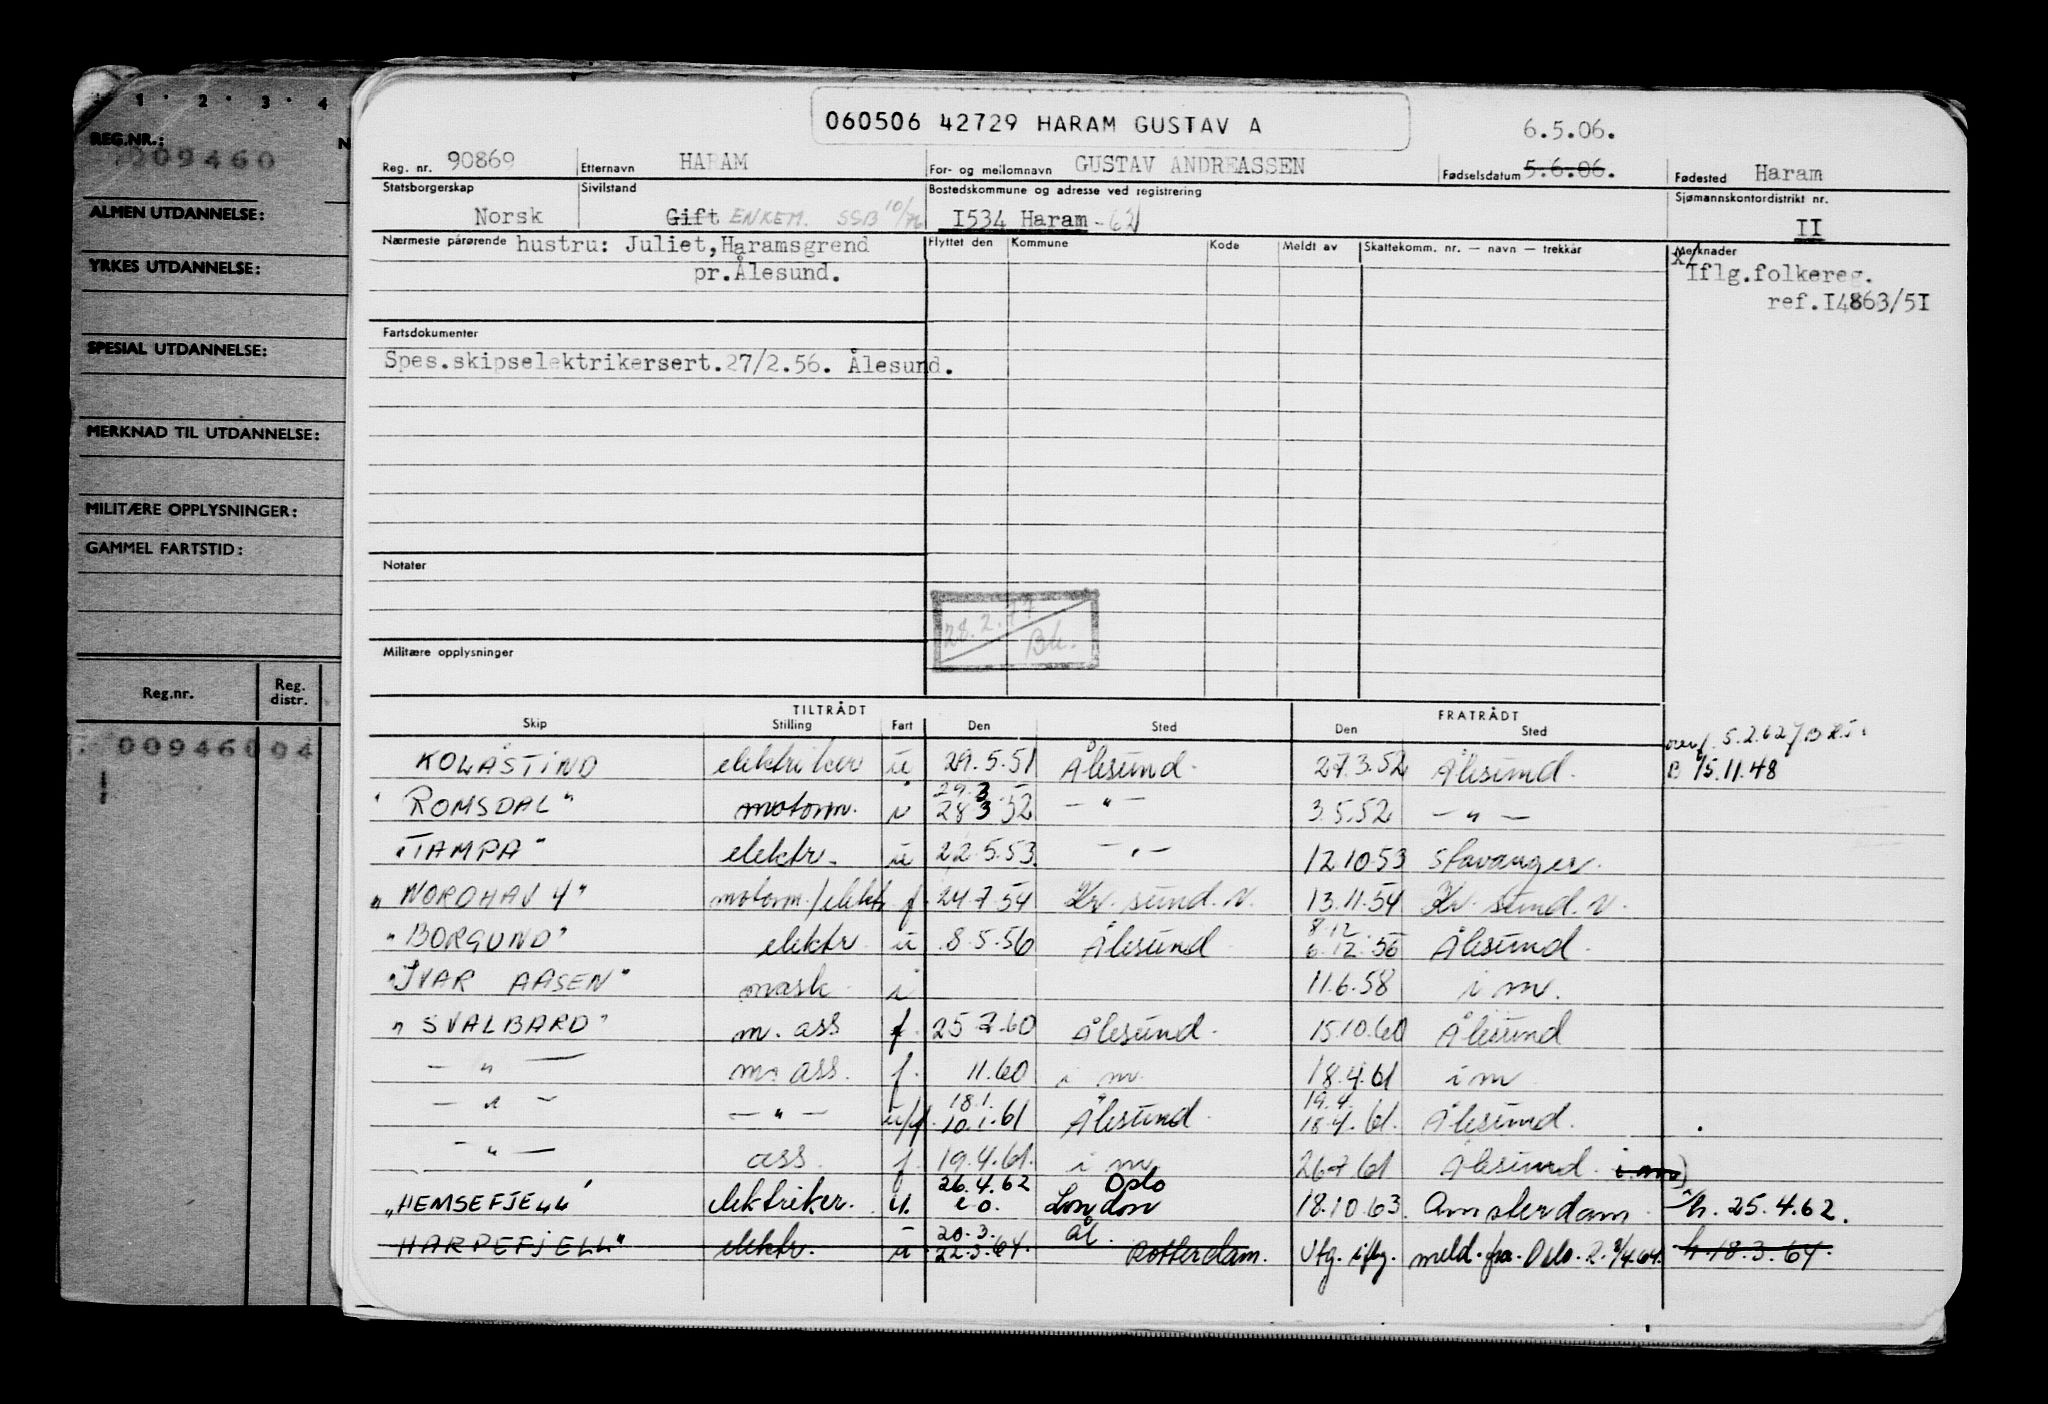 1 2 3 4
REG.NR.: N
009460
ALMEN UTDANNELSE:
YRKES UTDANNELSE:
SPESIAL UTDANNELSE:
MERKNAD TIL UTDANNELSE:
MILITÆRE OPPLYSNINGER:
GAMMEL FARTSTID:
Reg.nr. Reg. distr.
00946004
060506 42729 HARAM GUSTAV A
6.5.06.
Reg. nr. 90869 Etternavn HARAM For- og mellomnavn GUSTAV ANDREASSEN Fødselsdatum 5.6.06. Fødested Haram
Statsborgerskap Sivilstand Bostedskommune og adresse ved registrering Sjømannskontordistrikt nr.
Norsk Gift ENKEM. SSB 10/76 I534 Haram - 62 II
Nærmeste pårørende hustru: Juliet, Haramsgrend Flyttet den Kommune Kode Meldt av Skattekomm. nr. — navn — trekkår Merknader
pr.Ålesund. x/ Iflg.folkereg.
ref.I4863/5I
Fartsdokumenter
Spes.skipselektrikersert.27/2.56. Ålesund.
Notater
28.2.77
Bk.
Militære opplysninger
TILTRÅDT FRATRÅDT
Skip Stilling Fart Den Sted Den Sted
overf. 5.2.62
KOLÅSTIND elektriker u 29.5.51 Ålesund. 27.3.52 Ålesund. B 15.11.48
29.3
"ROMSDAL" motorm. i 28 3.52 — " — 3.5.52 — " —
"TAMPA" elektr. u 22.5.53. — " — 12.10.53 Stavanger.
"NORDHAV 4" motorm./elektr f. 24.7.54 Kr. sund. N. 13.11.54 Kr. sund. N.
8.12.
"BORGUND" elektr. u 8.5.56 Ålesund 6.12.56 Ålesund.
"IVAR AASEN" mask. i 11.6.58 i m.
"SVALBARD" m. ass f. 25.7.60 Ålesund. 15.10.60 Ålesund
— " — m. ass. f. 11.60 i m. 18.4.61 i m
18.1. 19.4.
— " — — " — u/f. 10.1.61 Ålesund. 18.4.61. Ålesund.
— " — ass. f. 19.4.61. i m. 26.7.61 Ålesund. i m
26.4.62 Oslo
"HEMSEFJELL" elektriker. u. e.o. London 18.10.63. Amsterdam h. 25.4.62.
20.3. Ål.
"HARPEFJELL" elektr. u 22.3.64. Rotterdam. Utg. iflg. meld. fra. Oslo. 2.4.64. h. 18.3.64.